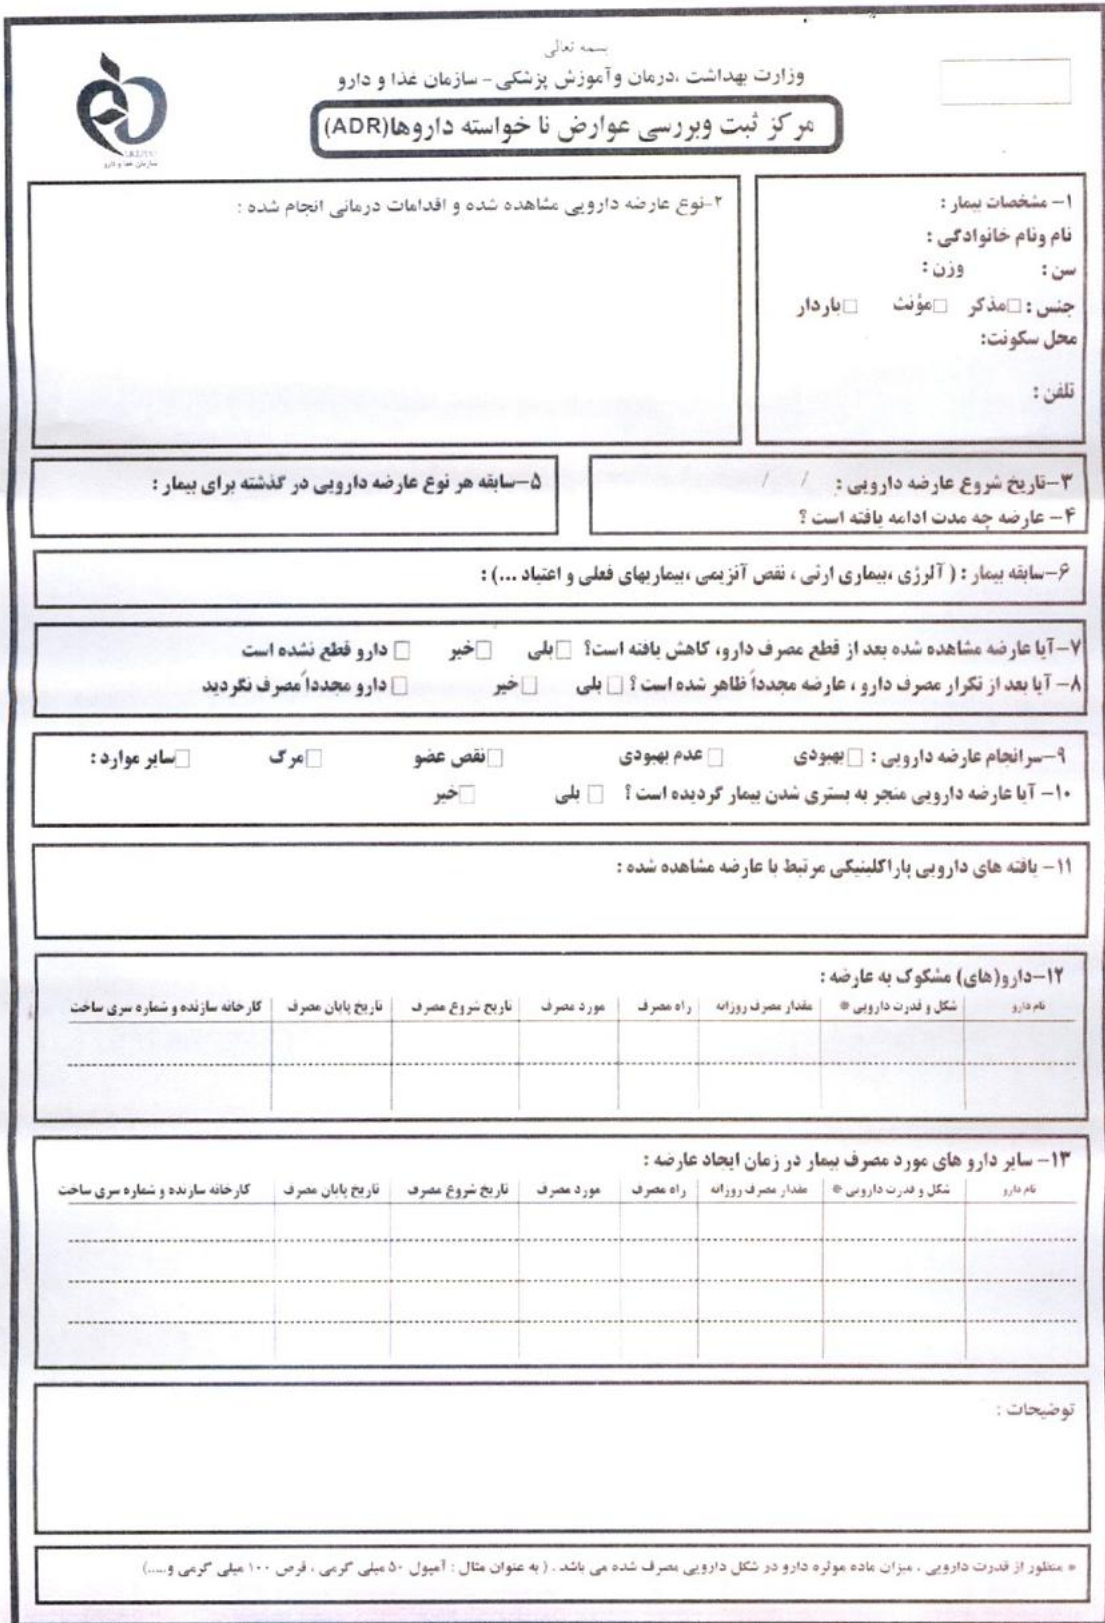 بسمه تعالی
وزارت بهداشت ،درمان وآموزش پزشکی - سازمان غذا و دارو
مرکز ثبت وبررسی عوارض نا خواسته داروها(ADR)
سازمان غذا و دارو
۱- مشخصات بیمار :
نام ونام خانوادگی :
سن : وزن :
جنس : □مذکر □مؤنث □باردار
محل سکونت:
تلفن :
۲-نوع عارضه دارویی مشاهده شده و اقدامات درمانی انجام شده :
۳-تاریخ شروع عارضه دارویی : / /
۴- عارضه چه مدت ادامه یافته است ؟
۵-سابقه هر نوع عارضه دارویی در گذشته برای بیمار :
۶-سابقه بیمار : ( آلرژی ،بیماری ارثی ، نقص آنزیمی ،بیماریهای فعلی و اعتیاد ...) :
۷-آیا عارضه مشاهده شده بعد از قطع مصرف دارو، کاهش یافته است؟ □بلی □خیر □ دارو قطع نشده است
۸- آیا بعد از تکرار مصرف دارو ، عارضه مجدداً ظاهر شده است ؟ □ بلی □خیر □ دارو مجدداً مصرف نگردید
۹-سرانجام عارضه دارویی : □بهبودی □ عدم بهبودی □نقص عضو □مرگ □سایر موارد :
۱۰- آیا عارضه دارویی منجر به بستری شدن بیمار گردیده است ؟ □ بلی □خیر
۱۱- یافته های دارویی پاراکلینیکی مرتبط با عارضه مشاهده شده :
۱۲-دارو(های) مشکوک به عارضه :
نام دارو شکل و قدرت دارویی * مقدار مصرف روزانه راه مصرف مورد مصرف تاریخ شروع مصرف تاریخ پایان مصرف کارخانه سازنده و شماره سری ساخت
۱۳- سایر دارو های مورد مصرف بیمار در زمان ایجاد عارضه :
نام دارو شکل و قدرت دارویی * مقدار مصرف روزانه راه مصرف مورد مصرف تاریخ شروع مصرف تاریخ پایان مصرف کارخانه سازنده و شماره سری ساخت
توضیحات :
* منظور از قدرت دارویی ، میزان ماده موثره دارو در شکل دارویی مصرف شده می باشد . ( به عنوان مثال : آمپول ۵۰ میلی گرمی ، قرص ۱۰۰ میلی گرمی و.....)